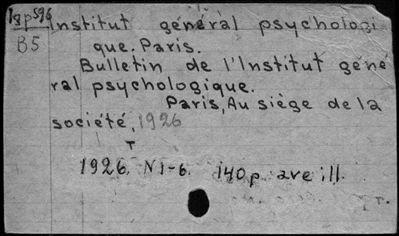 18p596
B5
Institut général psychologi
que. Paris.
Bulletin de l'Institut géné
ral psychologique.
Paris, Au siège de la
société, 1926
T
1926. N1-6. 140p. avec ill.